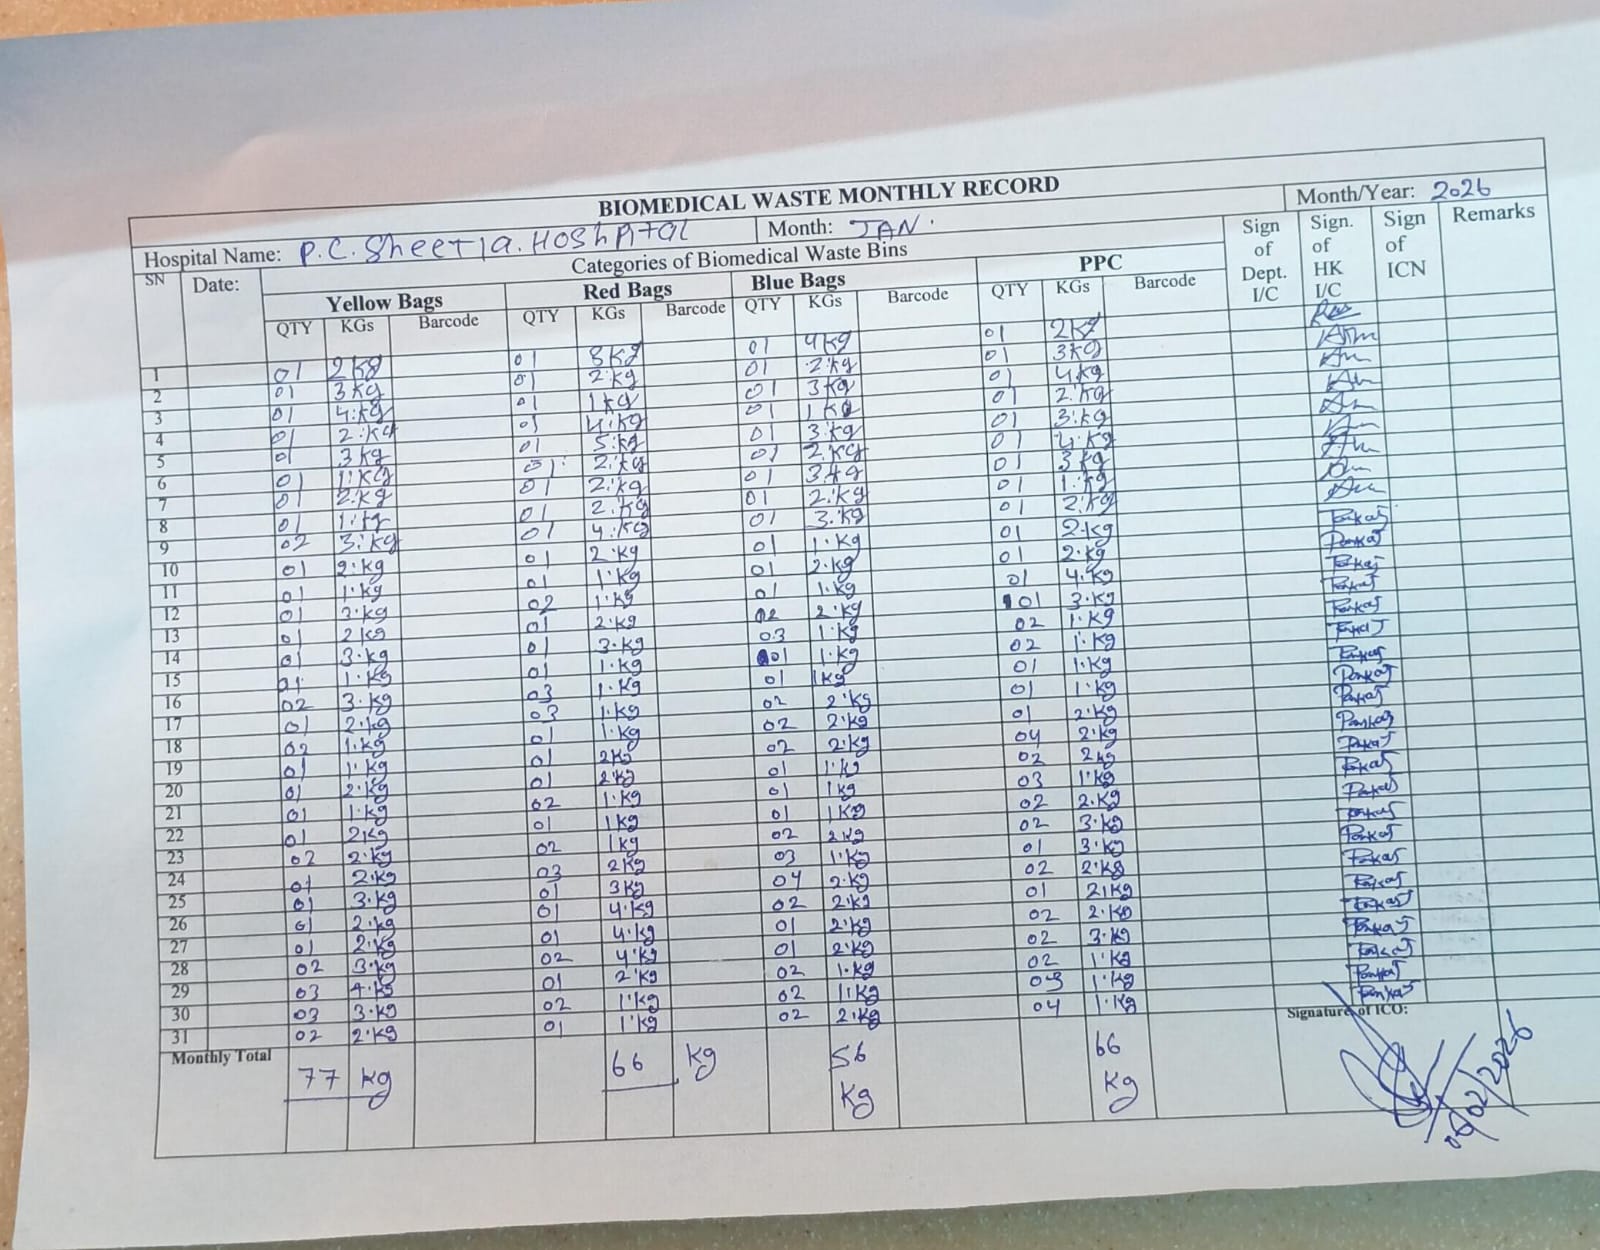 BIOMEDICAL WASTE MONTHLY RECORD
Hospital Name: P.C. Sheetla. Hoshpital Month: JAN. Month/Year: 2026
SN Date: Categories of Biomedical Waste Bins Sign of Dept. I/C Sign. of HK I/C Sign of ICN Remarks
Yellow Bags Red Bags Blue Bags PPC
QTY KGs Barcode QTY KGs Barcode QTY KGs Barcode QTY KGs Barcode
1 01 2kg 01 3kg 01 4kg 01 2kg
2 01 3kg 01 2.kg 01 2.kg 01 3kg
3 01 4.kg 01 1kg 01 3kg 01 4kg
4 01 2.kg 01 4.kg 01 1kg 01 2.kg
5 01 3kg 01 5.kg 01 3.kg 01 3.kg
6 01 1.kg 01 2.kg 01 2.kg 01 4.kg
7 01 2.kg 01 2.kg 01 3kg 01 3kg
8 01 1.kg 01 2.kg 01 2.kg 01 1.kg
9 02 3.kg 01 4.kg 01 3.kg 01 2.kg
10 01 2.kg 01 2.kg 01 1.kg 01 2.kg Pankaj
11 01 1.kg 01 1.kg 01 2.kg 01 2.kg Pankaj
12 01 3.kg 02 1.kg 01 1.kg 01 4.kg Pankaj
13 01 2kg 01 2.kg 02 2.kg 01 3.kg Pankaj
14 01 3.kg 01 3.kg 03 1.kg 02 1.kg Pankaj
15 01 1.kg 01 1.kg 01 1.kg 02 1.kg Pankaj
16 02 3.kg 03 1.kg 01 1kg 01 1.kg Pankaj
17 01 2.kg 03 1.kg 02 2.kg 01 1.kg Pankaj
18 02 1.kg 01 1.kg 02 2.kg 01 2.kg Pankaj
19 01 1.kg 01 2kg 02 2.kg 04 2.kg Pankaj
20 01 2.kg 01 2kg 01 1.kg 02 2kg Pankaj
21 01 1.kg 02 1.kg 01 1kg 03 1.kg Pankaj
22 01 2kg 01 1kg 01 1kg 02 2.kg Pankaj
23 02 2.kg 02 1kg 02 2kg 02 3.kg Pankaj
24 01 2.kg 03 2kg 03 1.kg 01 3.kg Pankaj
25 01 3.kg 01 3kg 04 2.kg 02 2.kg Pankaj
26 01 2.kg 01 4.kg 02 2.kg 01 2.kg Pankaj
27 01 2.kg 01 4.kg 01 2.kg 02 2.kg Pankaj
28 02 3.kg 02 4.kg 01 2.kg 02 3.kg Pankaj
29 03 4.kg 01 2.kg 02 1.kg 02 1.kg Pankaj
30 03 3.kg 02 1.kg 02 1.kg 03 1.kg Pankaj
31 02 2.kg 01 1.kg 02 2.kg 04 1.kg Pankaj
Monthly Total 77 kg 66 kg 56 kg 66 kg
Signature of ICO: